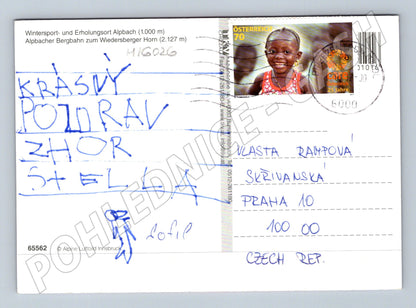 Wintersport- und Erholungsort Alpbach (1.000 m)
Alpbacher Bergbahn zum Wiedersberger Horn (2.127 m)
M16026
ÖSTERREICH
70
6000
KRÁSNÝ
POZDRAV
Z HOR
ŠTELLA
Sofie
VLASTA RAMPOVÁ
SKŘIVANSKÁ
PRAHA 10
100 00
CZECH REP.
65562 © Alpine Luftbild Innsbruck
POHLEDNICE-CZECH